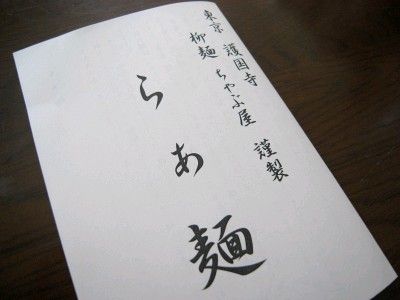 東京 護国寺
柳麺 ちゃぶ屋 謹製
らぁ麺